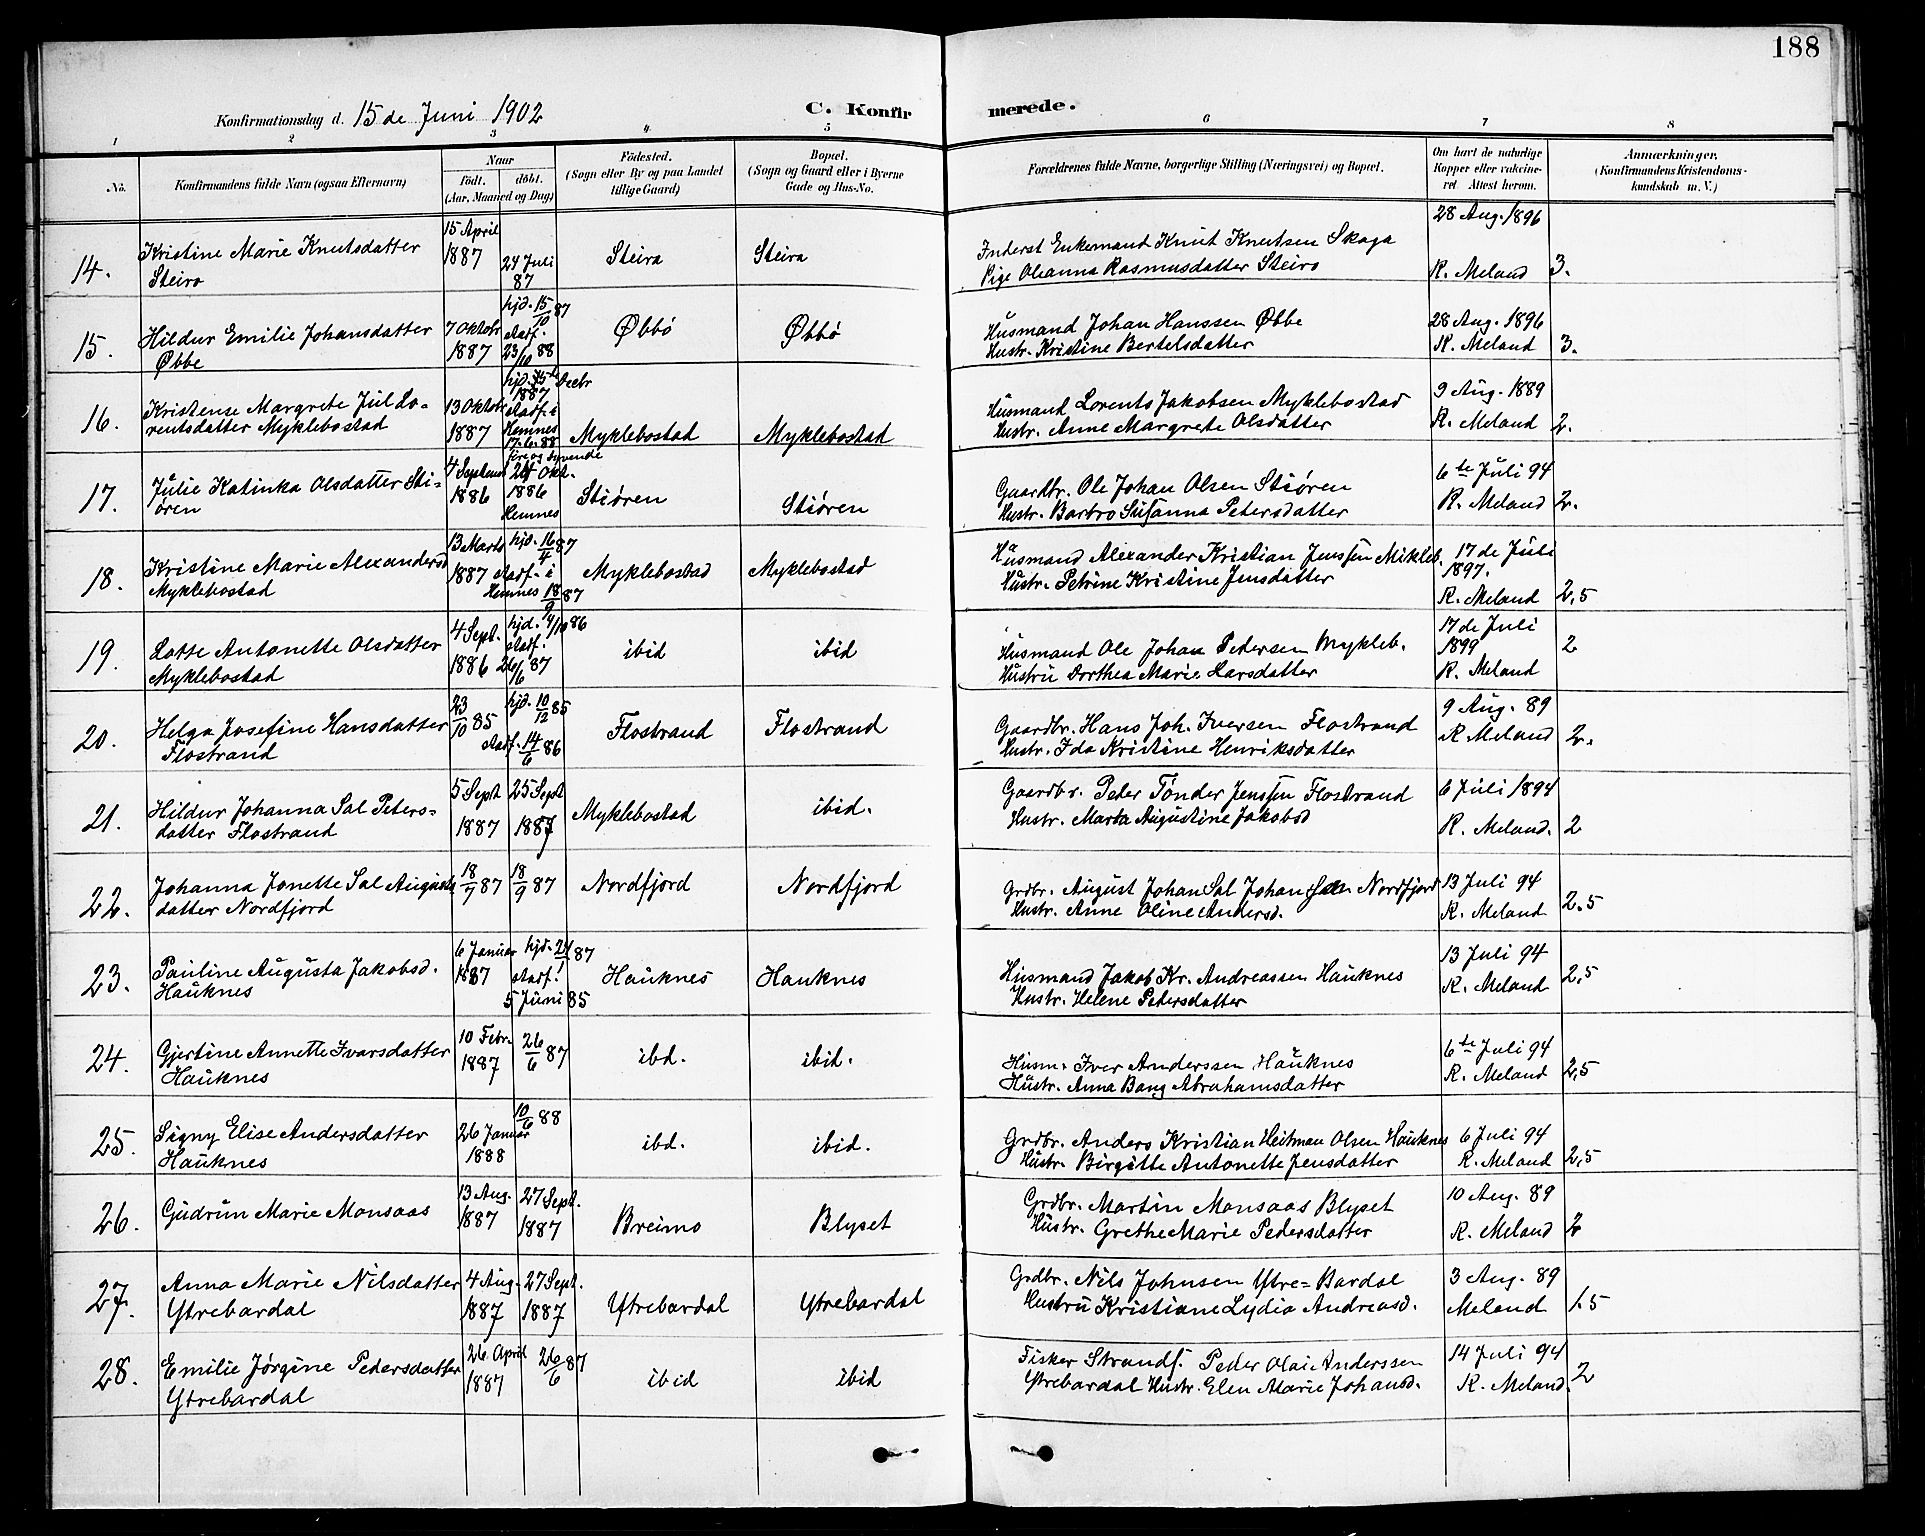 188
Konfirmationsdag d. 15 de Juni 1902
C. Konfirmerede.
1 2 3 4 5 6 7 8
No.
Konfirmandens fulde Navn (ogsaa Efternavn)
Naar
født. døbt.
(Aar, Maaned og Dag)
Fødested.
(Sogn eller By og paa Landet
tillige Gaard)
Bopæl.
(Sogn og Gaard eller i Byerne
Gade og Hus-No.
Forældrenes fulde Navne, borgerlige Stilling (Næringsvei) og Bopæl.
Om havt de naturlige
Kopper eller vakcine-
ret Attest herom.
Anmærkninger.
(Konfirmandens Kristendoms-
kundskab m. V.)
14. Kristine Marie Knutsdatter
Steiro
15 April
1887
24 Juli
87
Steira
Steira
Inderst Enkemand Knut Knutsen Skaga
Pige Oleanna Rasmusdatter Steiro
28 Aug. 1896
R. Meland
3.
15. Hildur Emilie Johansdatter
Øbbe
7 Oktobr
1887
hjd. 15/10 87
stadf.
23/10 88
Øbbø
Øbbø
Husmand Johan Hanssen Øbbe
Hustr. Kristine Bertelsdatter
28 Aug. 1896
R. Meland
3.
16. Kristense Margrete Jul Lo-
rentsdatter Myklebostad
13 Oktobr
1887
hjd. 15 Decbr
1887
stadf. i
Hemnes
17.6.88
Myklebostad
Myklebostad
Husmand Lorents Jakobsen Myklebostad
Hustr. Anne Margrete Olsdatter
9 Aug. 1889
R. Meland
2.
17. Julie Katinka Olsdatter Sti-
ören
4 Septemb
1886
fire og tyvende
24 Okt.
1886
Hemnes
Stiören
Stiören
Gaardbr. Ole Johan Olsen Stiören
Hustr. Barbro Susanna Petersdatter
6te Juli 94
R. Meland
2.
18. Kristine Marie Alexandersd
Myklebostad
13 Marts
1887
hjd. 16/4 87
stadf. i
Hemnes 18/9 87
Myklebostad
Myklebostad
Husmand Alexander Kristian Jenssen Mikleb.
Hustr. Petrine Kristine Jensdatter
17 de Juli
1897.
R. Meland
2,5
19. Lotte Antonette Olsdatter
Myklebostad
4 Sept.
1886
hjd. 4/10 86
stadf.
26/6 87
ibid
ibid
Husmand Ole Johan Pedersen Mykleb.
Hustru Dorthea Marie Larsdatter
17 de Juli
1899
R. Meland
2
20. Helga Josefine Hansdatter
Flostrand
23/10 85
hjd. 10/12 85
stadf. 14/6 86
Flostrand
Flostrand
Gaardbr. Hans Joh. Iversen Flostrand
Hustr. Ida Kristine Henriksdatter
9 Aug. 89
R Meland
2.
21. Hildur Johanna Sal Peters-
datter Flostrand
5 Sept
1887
25 Sept
1887
Myklebostad
ibid.
Gaardbr. Peder Tønder Jenssen Flostrand
Hustr. Marta Augustine Jakobsd
6 Juli 1894
R. Meland.
2
22. Johanna Jonette Sal Augusts
datter Nordfjord
18/7 87
18/9 87
Nordfjord
Nordfjord
Grdbr. August Johan Sal Johansen Nordfjord
Hustr. Anne Oline Andersd.
13 Juli 94
R. Meland
2.5
23. Pauline Augusta Jakobsd.
Hauknes
6 Januar
1887
hjd. 24/1 87
stadf.
5 Juni 85
Hauknes
Hauknes
Husmand Jakob Kr. Andreassen Hauknes
Hustr. Helene Pedersdatter
13 Juli 94
R. Meland
2,5
24. Gjertine Annette Ivarsdatter
Hauknes
10 Febr.
1887
26/6 87
ibd.
ibid.
Husm. Iver Anderssen Hauknes
Hustr. Anna Bang Abrahamsdatter
6te Juli 94
R. Meland
2,5
25. Signy Elise Andersdatter
Hauknes
26 Januar
1888
10/6 88
ibd.
ibid.
Grdbr. Anders Kristian Heitman Olsen Hauknes
Hustr. Birgitte Antonette Jensdatter
6 Juli 94
R. Meland
2,5
26. Gudrun Marie Monsaas
13 Aug.
1887
27 Sept.
1887
Breimo
Blyset
Grdbr. Martin Monsaas Blyset
Hustr. Grethe Marie Pedersdatter
10 Aug. 89
R. Meland
2
27. Anna Marie Nilsdatter
Ytrebardal
4 Aug.
1887
27 Sept.
1887
Ytrebardal
Ytrebardal
Grdbr. Nils Johnsen Ytre-Bardal
Hustru Kristiane Lydia Andreasd.
3 Aug. 89
Meland
1.5
28. Emilie Jørgine Pedersdatter
Ytrebardal
26 April
1887
26/6 87
ibid
ibid
Fisker Strands. Peder Olai Anderssen
Ytrebardal Hustr. Elen Marie Johansd.
14 Juli 94
R. Meland.
2